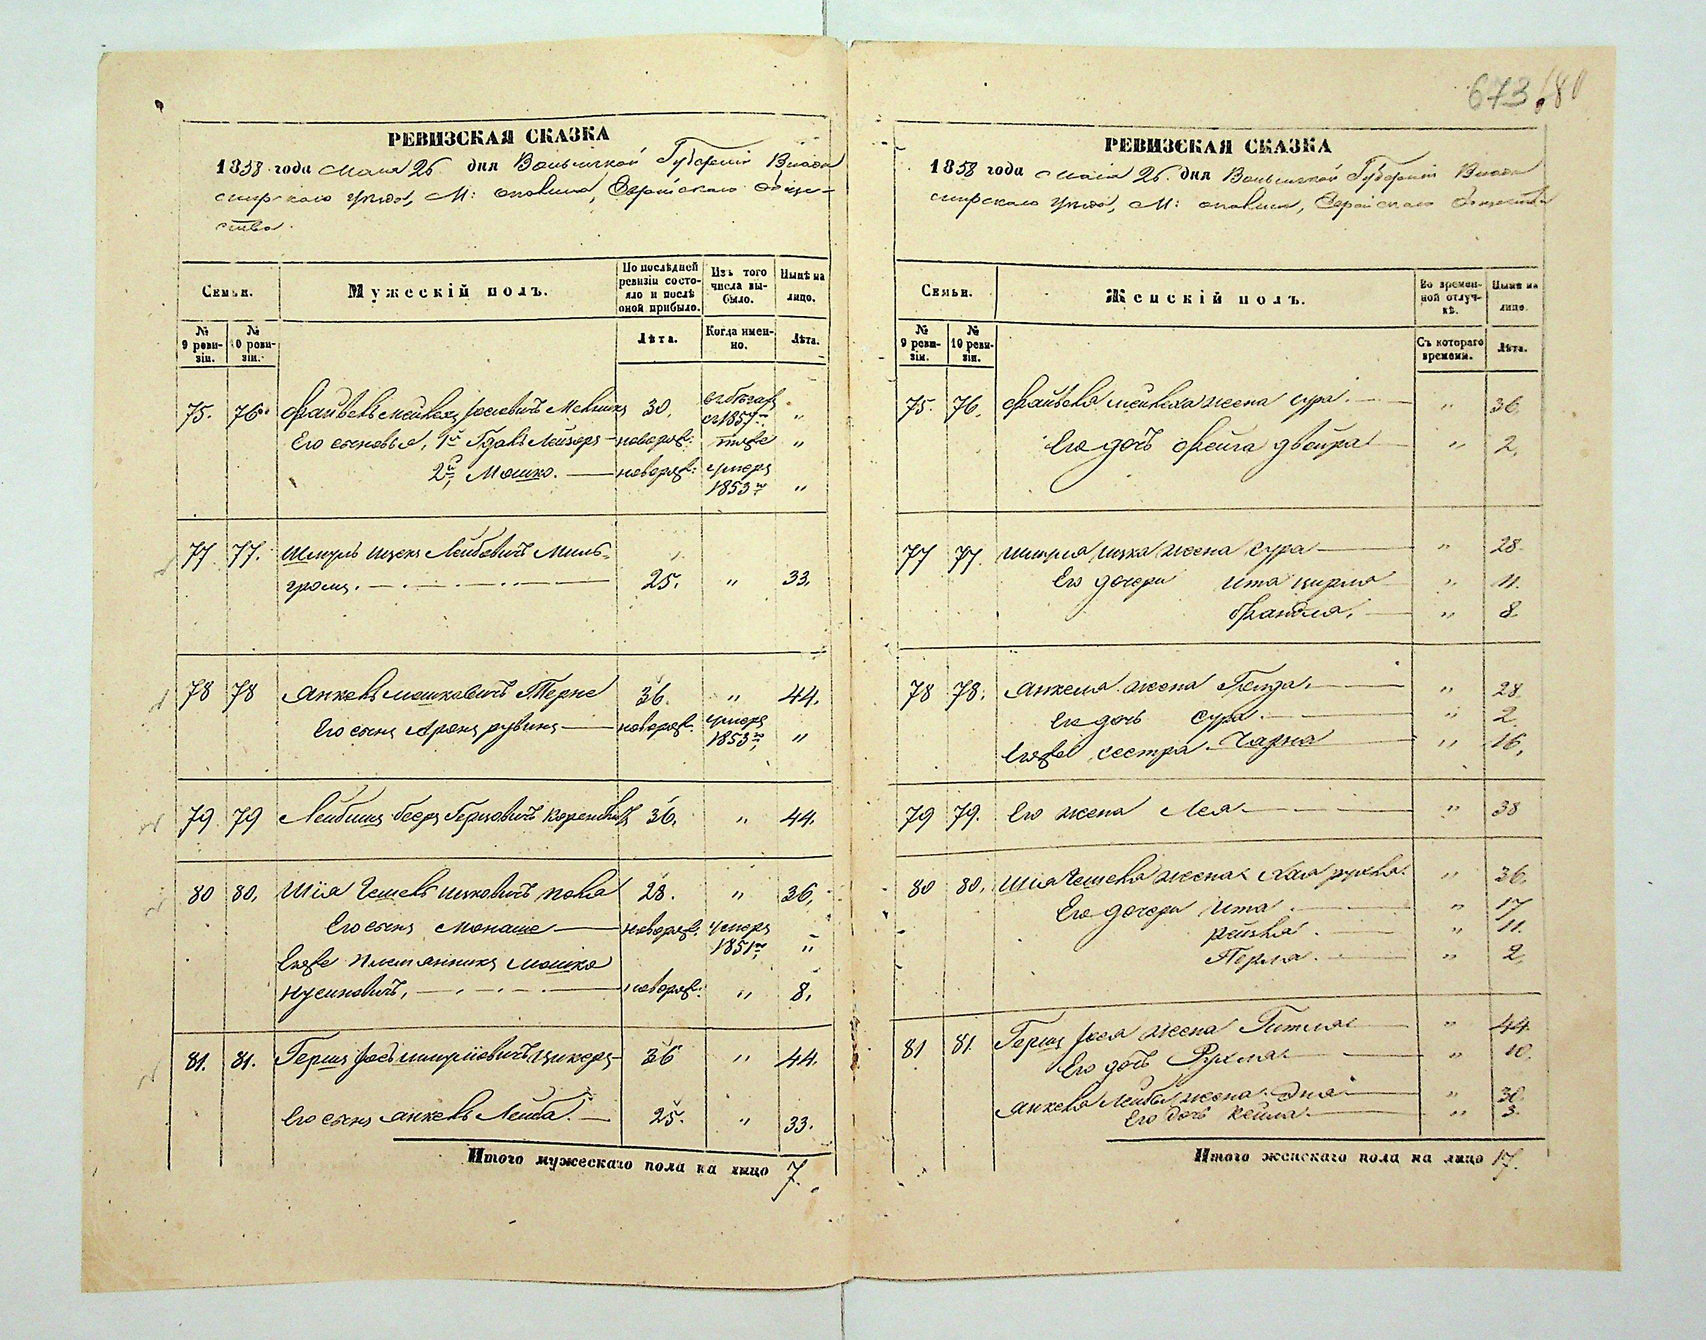 673 /80
РЕВИЗСКАЯ СКАЗКА
1858 года Маія 26 дня Волынской Губерніи Влади
мирскаго уѣзда, М: Еврейскаго общe-
ства.
Семьи.
Мужескій полъ.
По послѣдней ревизіи состояло и послѣ оной прибыло.
Изъ того числа выбыло.
Нынѣ на лицо.
№ 9 ревизіи.
№ 10 ревизіи.
Лѣта.
Когда именно.
Лѣта.
75. 76. Файвель Мейлехъ Іосевичъ 30. въ бѣгах
съ 1857 г. "
Его сыновья, 1й Лейзеръ — новорожд: тоже "
2й, Мошко. — новорожд: умеръ
1853 г. "
77 77. Шмуль Ицекъ Лейбовичъ Миль-
громъ. 25. " 33.
78 78 Янкель Мошковичъ Терне 36. " 44.
Его сынъ Аронъ Рувинъ — новорожд. умеръ
1853 г. "
79 79 Лейбишъ Беръ Герцовичъ 36. " 44.
80 80. Шія Ицковичъ 28. " 36.
Его сынъ Монаше — новорожд. умеръ
1851 г. "
Егоже племянникъ Мошко
Нусиновичъ. новорожд: " 8.
81. 81. Гершъ Іось Шмуліовичъ Цикеръ 36 " 44.
Его сынъ Янкель Лейба. — 25. " 33.
Итого мужескаго пола на лицо 7.
РЕВИЗСКАЯ СКАЗКА
1858 года Маія 26. дня Волынской Губерніи Влади
мирскаго уѣзда, М: Еврейскаго Общества
Семьи.
Женскій полъ.
Во временной отлучкѣ.
Нынѣ на лицо.
№ 9 ревизіи.
№ 10 ревизіи.
Съ котораго времени.
Лѣта.
75. 76. Файвеля Мейлеха жена Сура. " 36.
Его дочь Фейга Двойра " 2.
77 77. Шмуля Ицка жена Сура " 28.
Его дочери Ита Цирля " 11.
Брандля. " 8.
78 78. Янкеля жена " 28.
Его дочь Сура. " 2.
Егоже сестра Чарна " 16.
79 79. Его жена Лея " 38
80 80. жена Хая " 36.
Его дочери Ита " 17
Рейзля. " 11.
Перля. " 2.
81 81. Герша Іося жена Гитля " 44
Его дочь Рухля " 10.
Янкеля Лейбы жена " 30.
Его дочь Кейла " 3.
Итого женскаго пола на лицо 17.